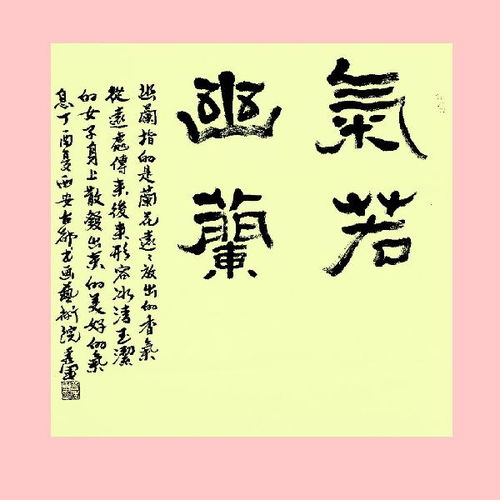 氣若
幽蘭
幽蘭指的是蘭花遠々放出的香氣
從遠處傳來後來形容冰清玉潔
的女子身上散發出來的美好的氣
息丁酉夏西安古都書画藝術院